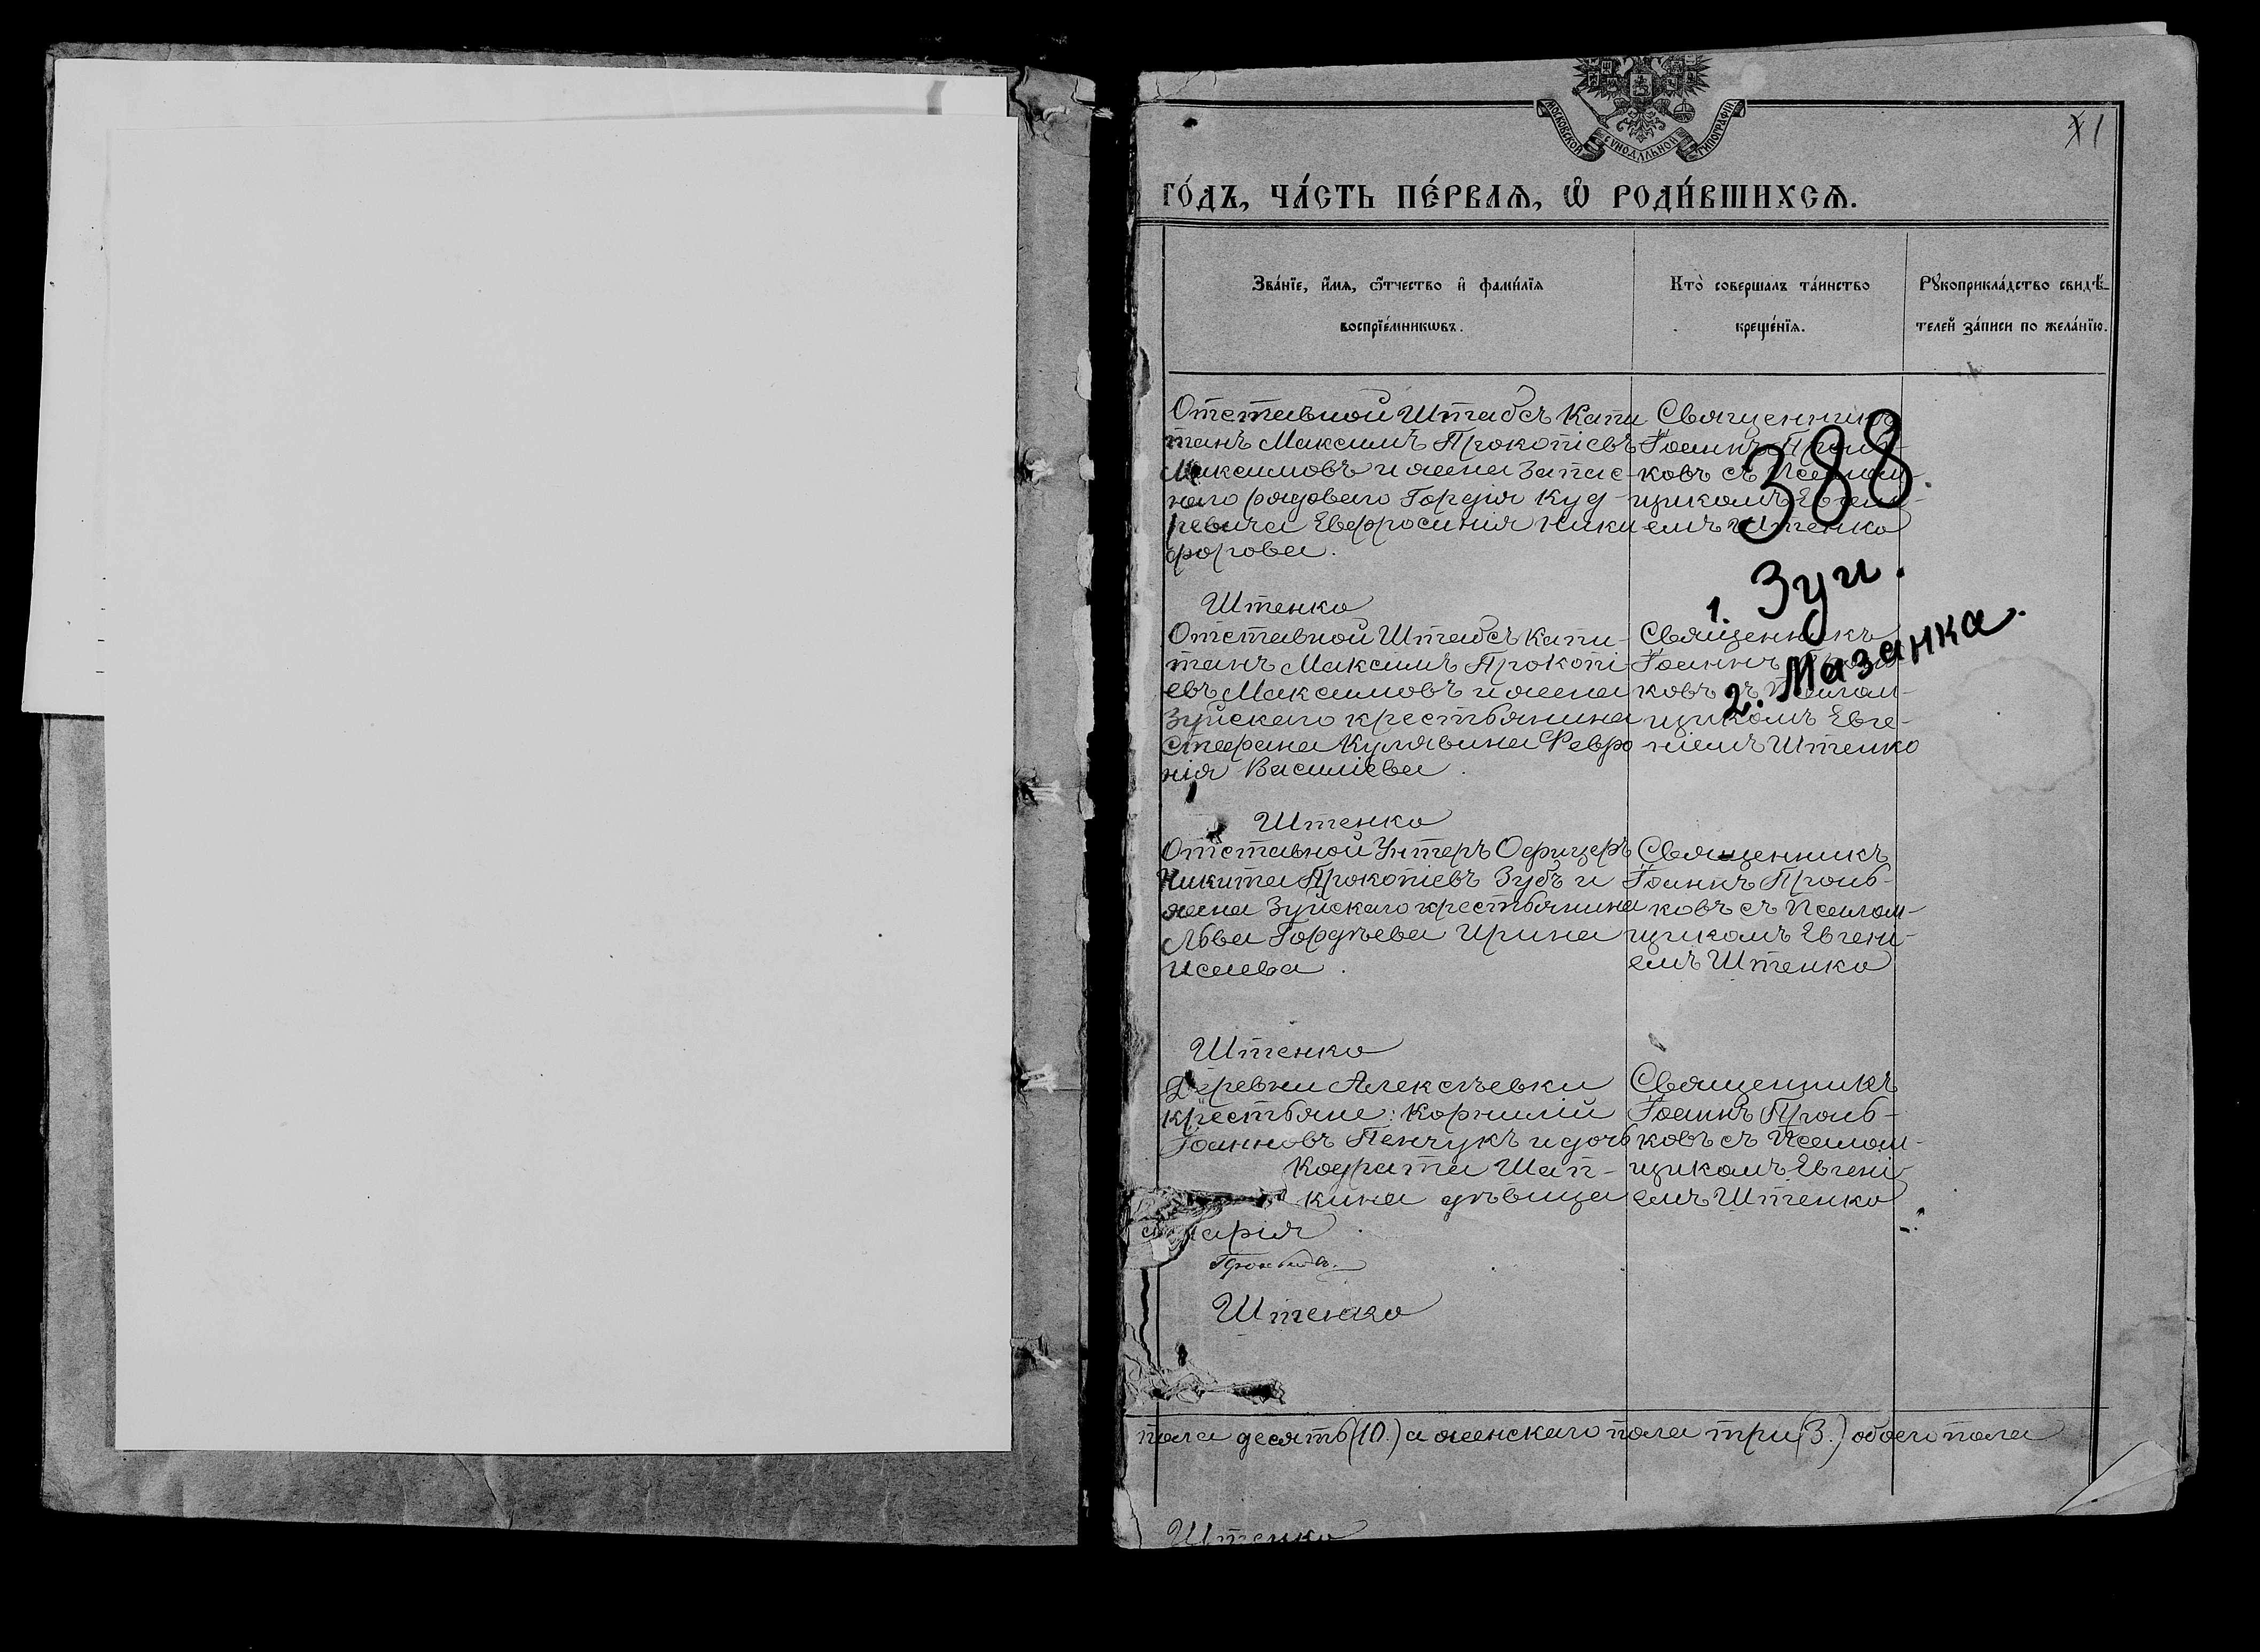 МОСКОВСКОЙ СѴНОДАЛЬНОЙ ТИПОГРАФІИ
1
ГО́ДЪ, ЧА́СТЬ ПЕ́РВАѦ, Ѡ҆ РОДИ́ВШИХСѦ.
Зва́нїе, и҆́мѧ, ѻ҆́тчество и҆ фами́лїѧ
воспрїе́мникѡвъ.
Кто̀ соверша́лъ та́инство
креще́нїѧ.
Рꙋкоприкла́дство свидѣ́-
телей за́писи по жела́нїю.
Отставной Штабсъ Капи
танъ Максимъ Прокопіевъ
Максимовъ и жена запас-
наго рядоваго Гордія Куд-
ревича Евфросинія Ники
форова.
Священникъ
Іоаннъ
ковъ съ Псалом-
щикомъ Евгені-
емъ Штенко
388.
1. Зуи.
2. Мазанка.
Штенко
Отставной Штабсъ Капи-
танъ Максимъ Прокопі-
евъ Максимовъ и жена
Зуйскаго крестьянина
Стефана Кулявина Февро
нія Василіева.
Священникъ
Іоаннъ
ковъ съ Псалом-
щикомъ Евге-
ніемъ Штенко
Штенко
Отставной Унтеръ Офицеръ
Никита Прокопіевъ Зубъ и
жена Зуйскаго крестьянина
Льва Гордѣева Ирина
Исаева.
Священникъ
Іоаннъ Проиь-
ковъ съ Псалом-
щикомъ Евгені-
емъ Штенко
Штенко
Деревни Алексѣевки
крестьяне: Корнилій
Іоанновъ Пенчукъ и дочь
Кодрата Шап-
кина дѣвица
Марія.
Священникъ
Іоаннъ Проиь-
ковъ съ Псалом-
щикомъ Евгені-
емъ Штенко
Штенко
пола десять (10.) а женскаго пола три (3.) обоего пола
Штенко